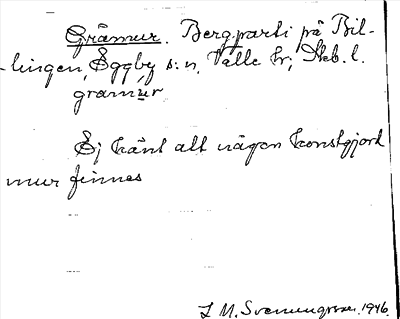 Gråmur. Bergparti på Bil-
lingen, Eggby s:n, Valle hr; Skb. l.
gramúr
Ej känt att någon konstgjord
mur finnes
L M. Svenungsson. 1946.